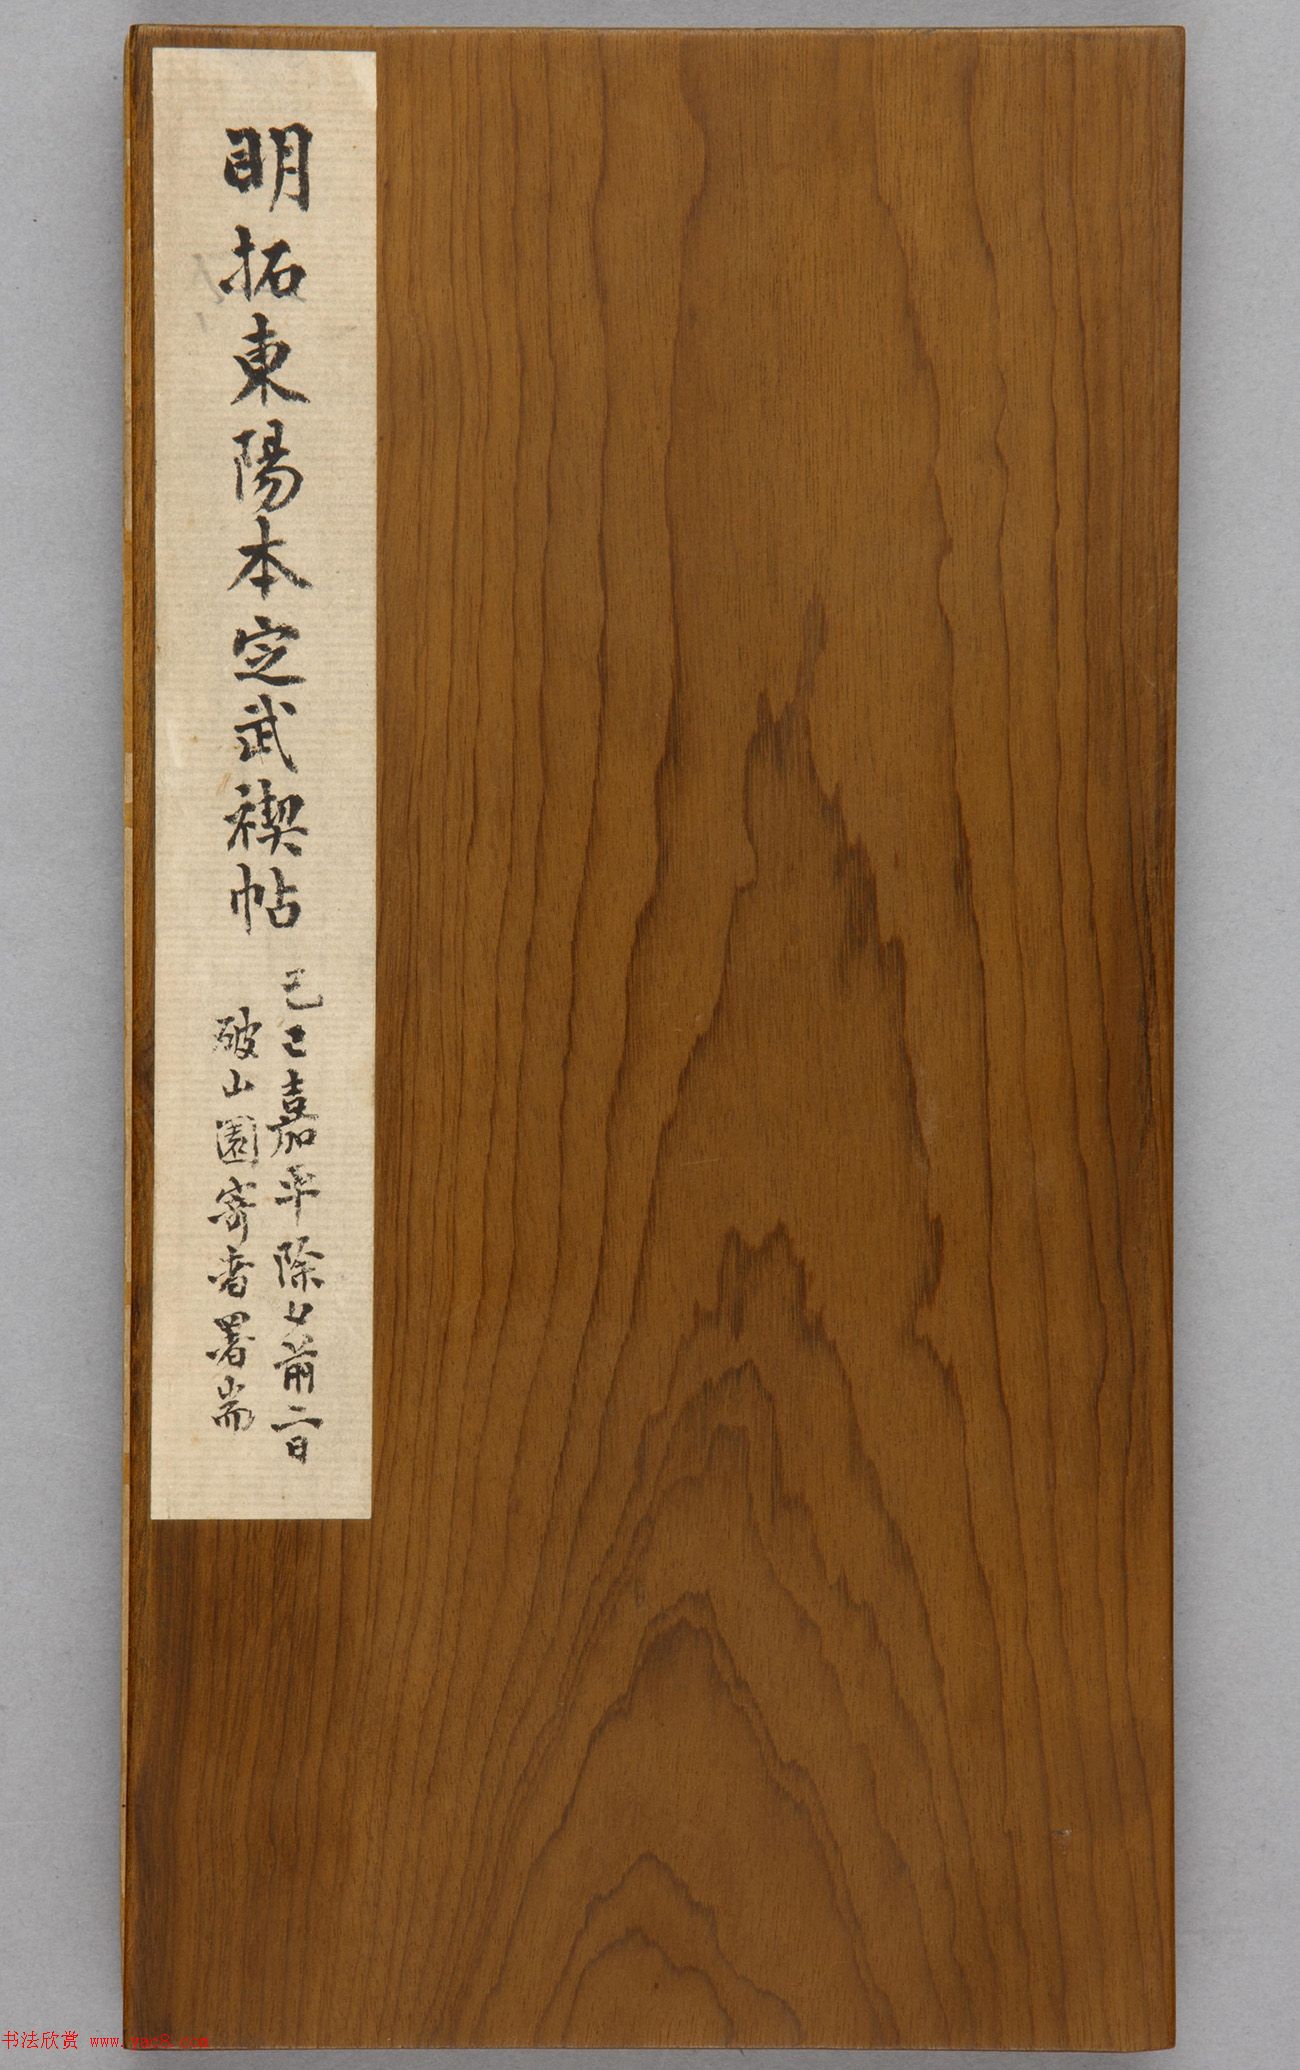 明拓東陽本定武禊帖
己巳嘉平除夕前二日
破山園寄者署耑
书法欣赏 www.yac8.com